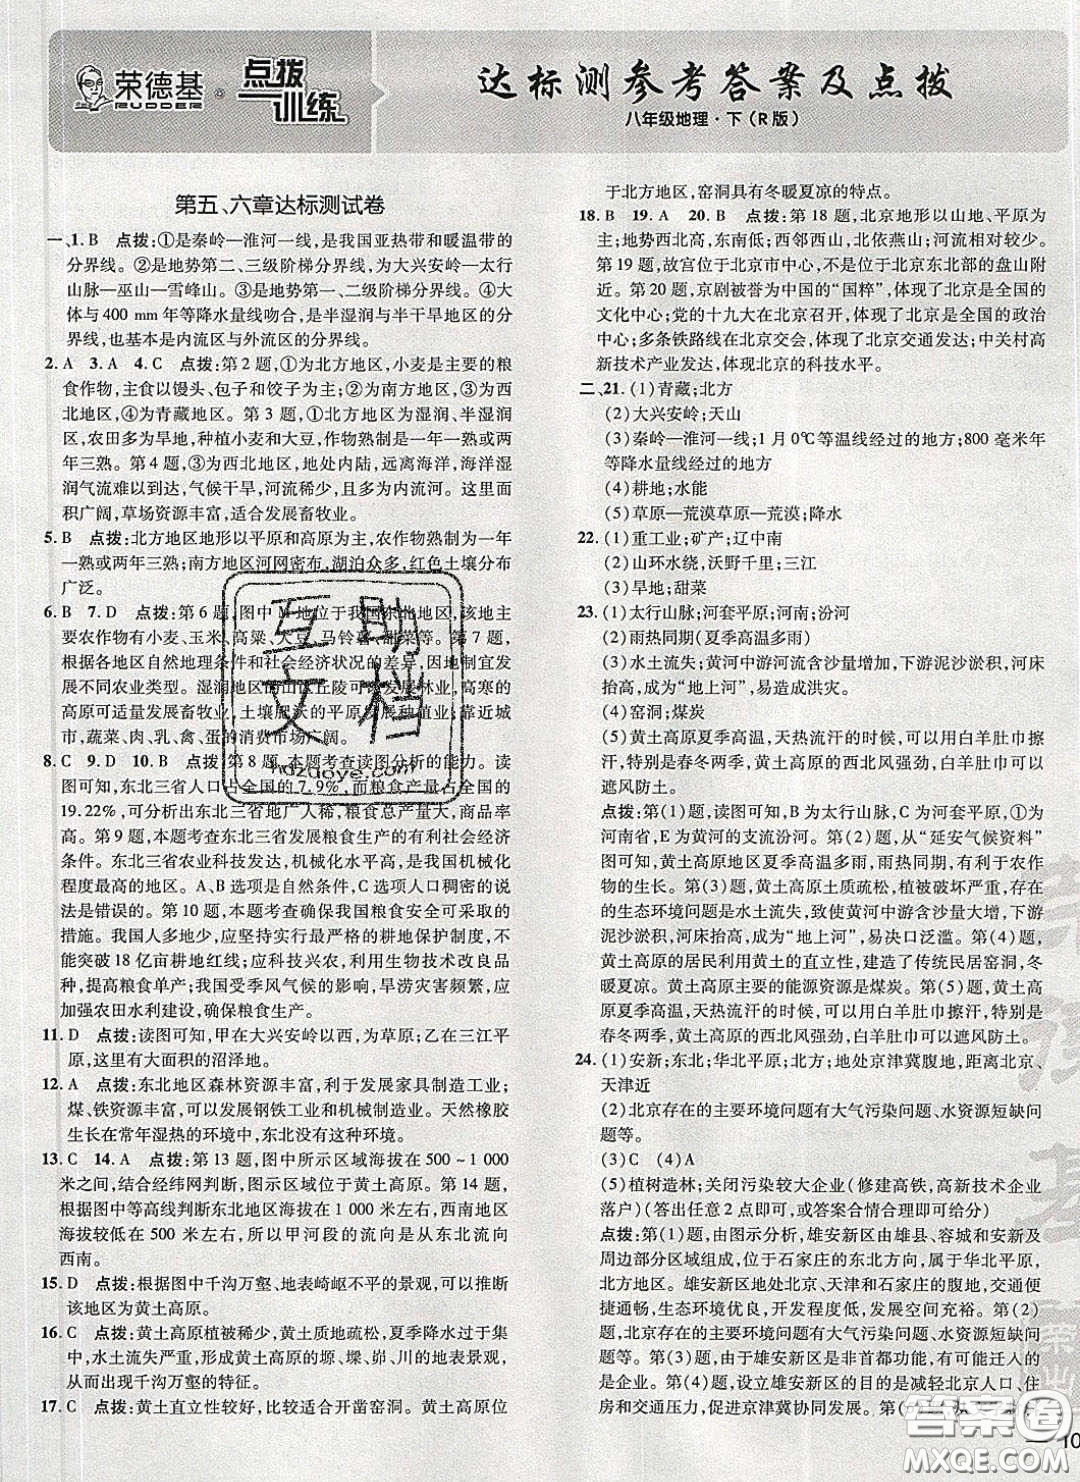 荣德基
RUDDER
点拨
训练
达标测参考答案及点拨
八年级地理·下(R版)
第五、六章达标测试卷
一、1. B 点拨:①是秦岭—淮河一线,是我国亚热带和暖温带的
分界线。②是地势第二、三级阶梯分界线,为大兴安岭—太行
山脉—巫山—雪峰山。③是地势第一、二级阶梯分界线。④大
体与 400 mm 年等降水量线吻合,是半湿润与半干旱地区的分
界线,也基本是内流区与外流区的分界线。
2. A 3. A 4. C 点拨:第 2 题,①为北方地区,小麦是主要的粮
食作物,主食以馒头、包子和饺子为主;②为南方地区,③为西
北地区,④为青藏地区。第 3 题,①北方地区为湿润、半湿润
区,农田多为旱地,种植小麦和大豆,作物熟制是一年一熟或两
年三熟。第 4 题,③为西北地区,地处内陆,远离海洋,海洋湿
润气流难以到达,气候干旱,河流稀少,且多为内流河。这里面
积广阔,草场资源丰富,适合发展畜牧业。
5. B 点拨:北方地区地形以平原和高原为主,农作物熟制为一
年一熟或两年三熟;南方地区河网密布,湖泊众多,红色土壤分布
广泛。
6. B 7. D 点拨:第 6 题,图中 M 地位于我国东北地区,该地主
要农作物有小麦、玉米、高粱、大豆、马铃薯、甜菜等。第 7 题,
根据各地区自然地理条件和社会经济状况的差异,因地制宜发
展不同农业类型。湿润地区的山区丘陵可以发展林业,高寒的
高原可适量发展畜牧业,土壤肥沃的平原发展种植业;靠近城
市,蔬菜、肉、乳、禽、蛋的消费市场广阔。
8. C 9. D 10. B 点拨:第 8 题,本题考查读图分析的能力。读
图可知,东北三省人口占全国的 7.9%,而粮食产量占全国的
19.22%,可分析出东北三省地广人稀,粮食产量大,商品率高。
第 9 题,本题考查东北三省发展粮食生产的有利社会经济
条件。东北三省农业科技发达,机械化水平高,是我国机械化
程度最高的地区。A、B、C选项人口稠密的说
法是错误的。第 10 题,本题考查确保我国粮食安全可采取的
措施。我国人多地少,应坚持最严格的耕地保护制度,无
法突破 18 亿亩耕地红线;应科技兴农,利用技术改良品种,
提高粮食单产;我国受季风气候的影响,旱涝灾害频发,应
加强农田水利建设,确保粮食生产。
11. D 点拨:读图可知,甲在大兴安岭以西,为草原;乙在三江平
原,这里有大面积的沼泽地。
12. A 点拨:东北地区森林资源丰富,利于发展家具制造工业;
煤、铁资源丰富,可以发展钢铁工业和机械制造业。天然橡胶
生长在常年湿热的环境中,东北没有这种环境。
13. C 14. A 点拨:第 13 题,图中所示区域海拔在 500~1 000
米之间,结合经纬网判断,图示区域为黄土高原。第 14 题,
根据图中等高线判断东北地区海拔在 1 000 米以上,西南地区
海拔较低,在 500 米以下,所以甲河段的流向是从东北流向
西南。
15. D 点拨:根据图中千沟万壑、地表崎岖不平的景观,可以推断
该地区为黄土高原。
16. C 点拨:黄土高原植被稀少,黄土质地疏松,夏季降水过于集
中,水土流失严重,形成黄土高原的塬、墚、峁、川的地表景观,
从而形成千沟万壑的特征。
17. C 点拨:黄土直立性较好,比较适合开凿窑洞。黄土高原位
于北方地区,窑洞具有冬暖夏凉的特点。
18. B 19. A 20. B 点拨:第 18 题,北京地形以山地、平原为
主;地势西北高,东南低;西邻西山,北依燕山;河流相对较少。
第 19 题,故宫位于北京市中心,不是位于北京东北部的盘山附
近。第 20 题,京剧被誉为中国的“国粹”,体现了北京是全国的
文化中心;党的十九大在北京召开,体现了北京是全国的政治
中心;多条铁路线在北京交会,体现了北京交通发达;中关村高
新技术产业发达,体现了北京的科技水平。
二、21. (1)青藏;北方
(2)大兴安岭;天山
(3)秦岭—淮河一线;1 月 0℃等温线经过的地方;800 毫米年
等降水量线经过的地方
(4)耕地;水能
(5)草原—荒漠草原—荒漠;降水
22. (1)重工业;矿产;辽中南
(2)山环水绕,沃野千里;三江
(3)旱地;甜菜
23. (1)太行山脉;河套平原;河南;汾河
(2)雨热同期(夏季高温多雨)
(3)水土流失;黄河中游河流含沙量增加,下游泥沙淤积,河床
抬高,成为“地上河”,易造成洪灾。
(4)窑洞;煤炭
(5)黄土高原夏季高温,天热流汗的时候,可以用羊肚巾擦
汗,特别是春冬两季,黄土高原的西北风强劲,白羊肚巾又可以
遮风防尘土。
点拨:第(1)题,读图可知,B 为太行山脉,C 为河套平原,①为
河南省,E 为黄河的支流汾河。第(2)题,从“延安气候资料”
图可知,黄土高原地区夏季高温多雨,雨热同期,有利于农作
物的生长。第(3)题,黄土高原土质疏松,植被破坏严重,存在
的生态环境问题是水土流失,致使黄河中游含沙量大增,下游
泥沙淤积,成为“地上河”,易决口泛滥。第(4)题,黄土高原
的居民利用黄土的直立性,建造了传统民居窑洞,窑洞冬暖
夏凉。黄土高原的主要能源资源是煤炭。第(5)题,黄土高原
夏季高温,天热流汗的时候,可以用羊肚巾擦汗,特别是
春冬两季,黄土高原的西北风强劲,白羊肚巾可以遮风防土。
24. (1)安新;东北;华北平原;北方;地处京津冀腹地,距离北京、
天津近
(2)北京存在的主要环境问题有大气污染问题、水资源短缺问
题等。
(3)C (4)A
(5)植树造林;关闭污染较大企业(修建高铁,高新技术企业
落户)(答出任意 2 点即可,或答案合情合理即可给分)
点拨:第(1)题,由图示分析,雄安新区由雄县、容城和安新及
周边部分区域组成,位于石家庄的东北方向,属于华北平原,
北方地区。雄安新区地处北京、天津和石家庄的腹地,交通便
捷通畅,生态环境优良,开发程度较低,发展空间充裕。第(2)
题,北京存在的主要环境问题有大气污染问题、水资源短缺问
题等。第(3)题,由于雄安新区是非首都功能,有利于
疏解。第(4)题,设立雄安新区的主要目的是减轻北京人口、住
房和交通压力,促进京津冀协同发展。
互助
文档
hdzuoye.com
答案圈
MXQE.COM
荣德基
10